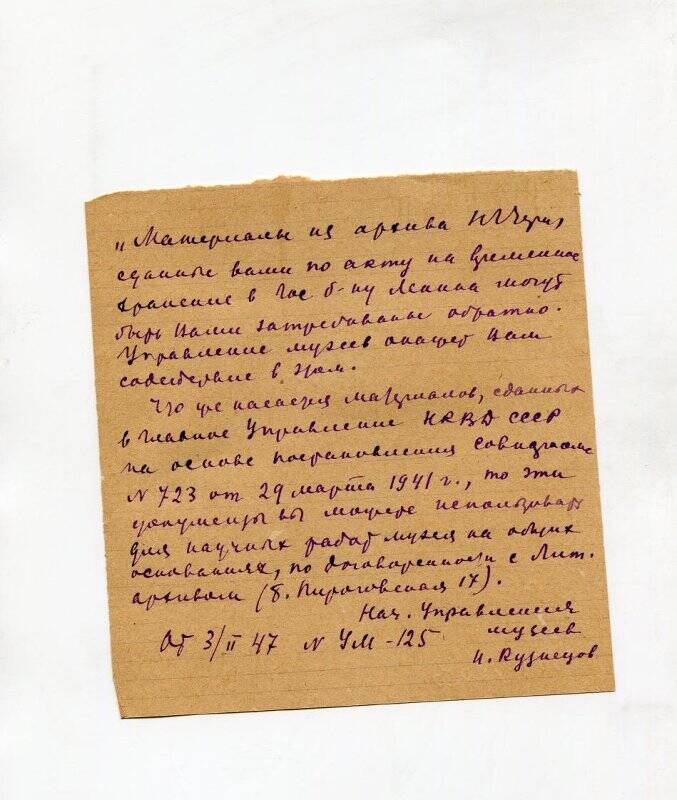 „Материалы из архива НГЧерн
сданные вами по акту на временное
хранение в Гос б-ку Ленина могут
быть Вами затребованы обратно.
Управление музеев окажет Вам
содействие в этом.
Что же касается материалов, сданных
в Главное Управление НКВД СССР
на основе постановления Совнаркома
N 723 от 29 марта 1941 г., то эти
документы вы можете использоват
для научных работ музея на общих
основаниях, по договоренности с Лит.
архивом (Б. Пироговская 17).
Нач. Управления
музеев
От 3/II 47 N УМ-125
И. Кузнецов